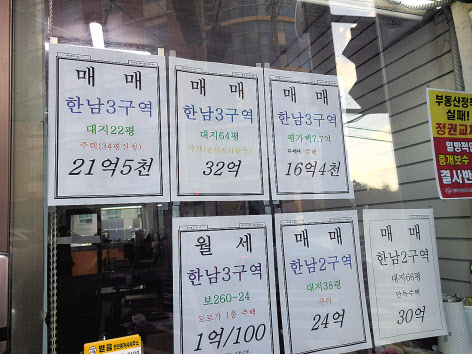 매 매
한남3구역
대지22평
주택(34평신청)
21억5천
매 매
한남3구역
대지64평
32억
매 매
한남3구역
평가액7.7억
주택
16억4천
월 세
한남3구역
보260-24
도로가 1층 주택
1억/100
매 매
한남2구역
대지38평
주택
24억
매 매
한남2구역
대지66평
단독주택
30억
부동산정책
실패!
정권교
일방적인
중개보수
결사반